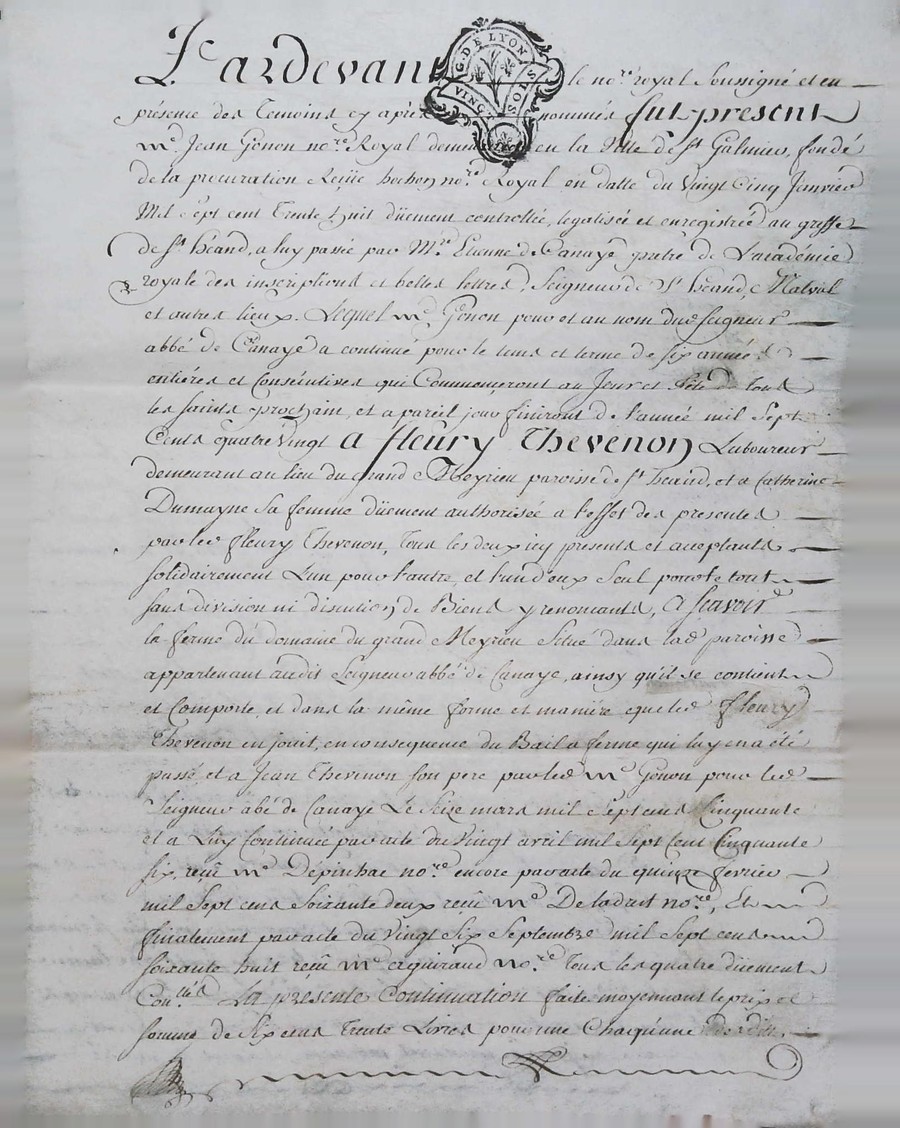 Pardevant le no.re royal Soussigné et en
G. DE LYON
VINGT SOLS
présence des Temoins cy après nommés fut présent
me. Jean Gonon no.re Royal demeurant en la Ville de St Galmier, fondé
de la procuration Reçüe hochon no.re Royal en datte du Vingt Cinq Janvier
Mil Sept cent Trente huit düement controllée, legalisée et enregistrée au greffe
de St héand, a luy passée par Mre. Etienne de Canaye prêtre de L'académie
royale des inscriptions et belles lettres, Seigneur de St héand, Malval
et autres lieux. Lequel me. Gonon pour et au nom dud. seigneur
abbé de Canaye a continué pour le tems et terme de six années
entiéres et Consécutives qui Commenceront au Jour et fête de Tous
les saints prochain, et a pareil jour finiront de l'année mil Sept
Cents quatre vingt a fleury Thevenon Laboureur
demeurant au lieu du grand Meyrieu paroisse de St heand, et a Catherine
Dumayne Sa femme düement authorisée a l'effet des presentes
par led fleury Thevenon, Tous les deux icy presents et acceptants
solidairement L'un pour l'autre, et l'un d'eux seul pour le tout
sans division ni discution de Biens y renoncants, a sçavoir
la ferme du domaine du grand Meyrieu Situé dans lad. paroisse
appartenant audit Seigneur abbé de Canaye, ainsy qu'il se contient
et Comporte, et dans la même forme et manière que led fleury
Thevenon en jouit, en consequence du Bail a ferme qui luy en a été
passé, et a Jean Thevenon son pere par led me Gonon pour led
Seigneur abé de Canaye Le Seize mars mil Sept cens Cinquante
et a Luy Continuée par acte du Vingt avril mil Sept Cent Cinquante
six, reçu me Dépinhac no.re encore par acte du quinze fevrier
mil Sept cens Soixante deux reçû me Deladroit no.re, Et
finalement par acte du Vingt Six Septembre mil Sept cens
soixante huit reçû me aguiraud no.re Tous les quatre düement
Con.llés La presente Continuation faite moyennant le prix et
somme de Six cens Trente Livres pour une Chacqune